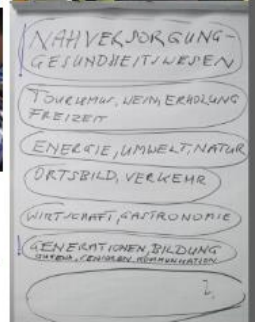 NAHVERSORGUNG-
GESUNDHEITSWESEN
TOURISMUS, WEIN, ERHOLUNG
FREIZEIT
ENERGIE, UMWELT, NATUR
ORTSBILD, VERKEHR
WIRTSCHAFT, GASTRONOMIE
GENERATIONEN, BILDUNG
JUGEND, SENIOREN, KOMMUNIKATION
?